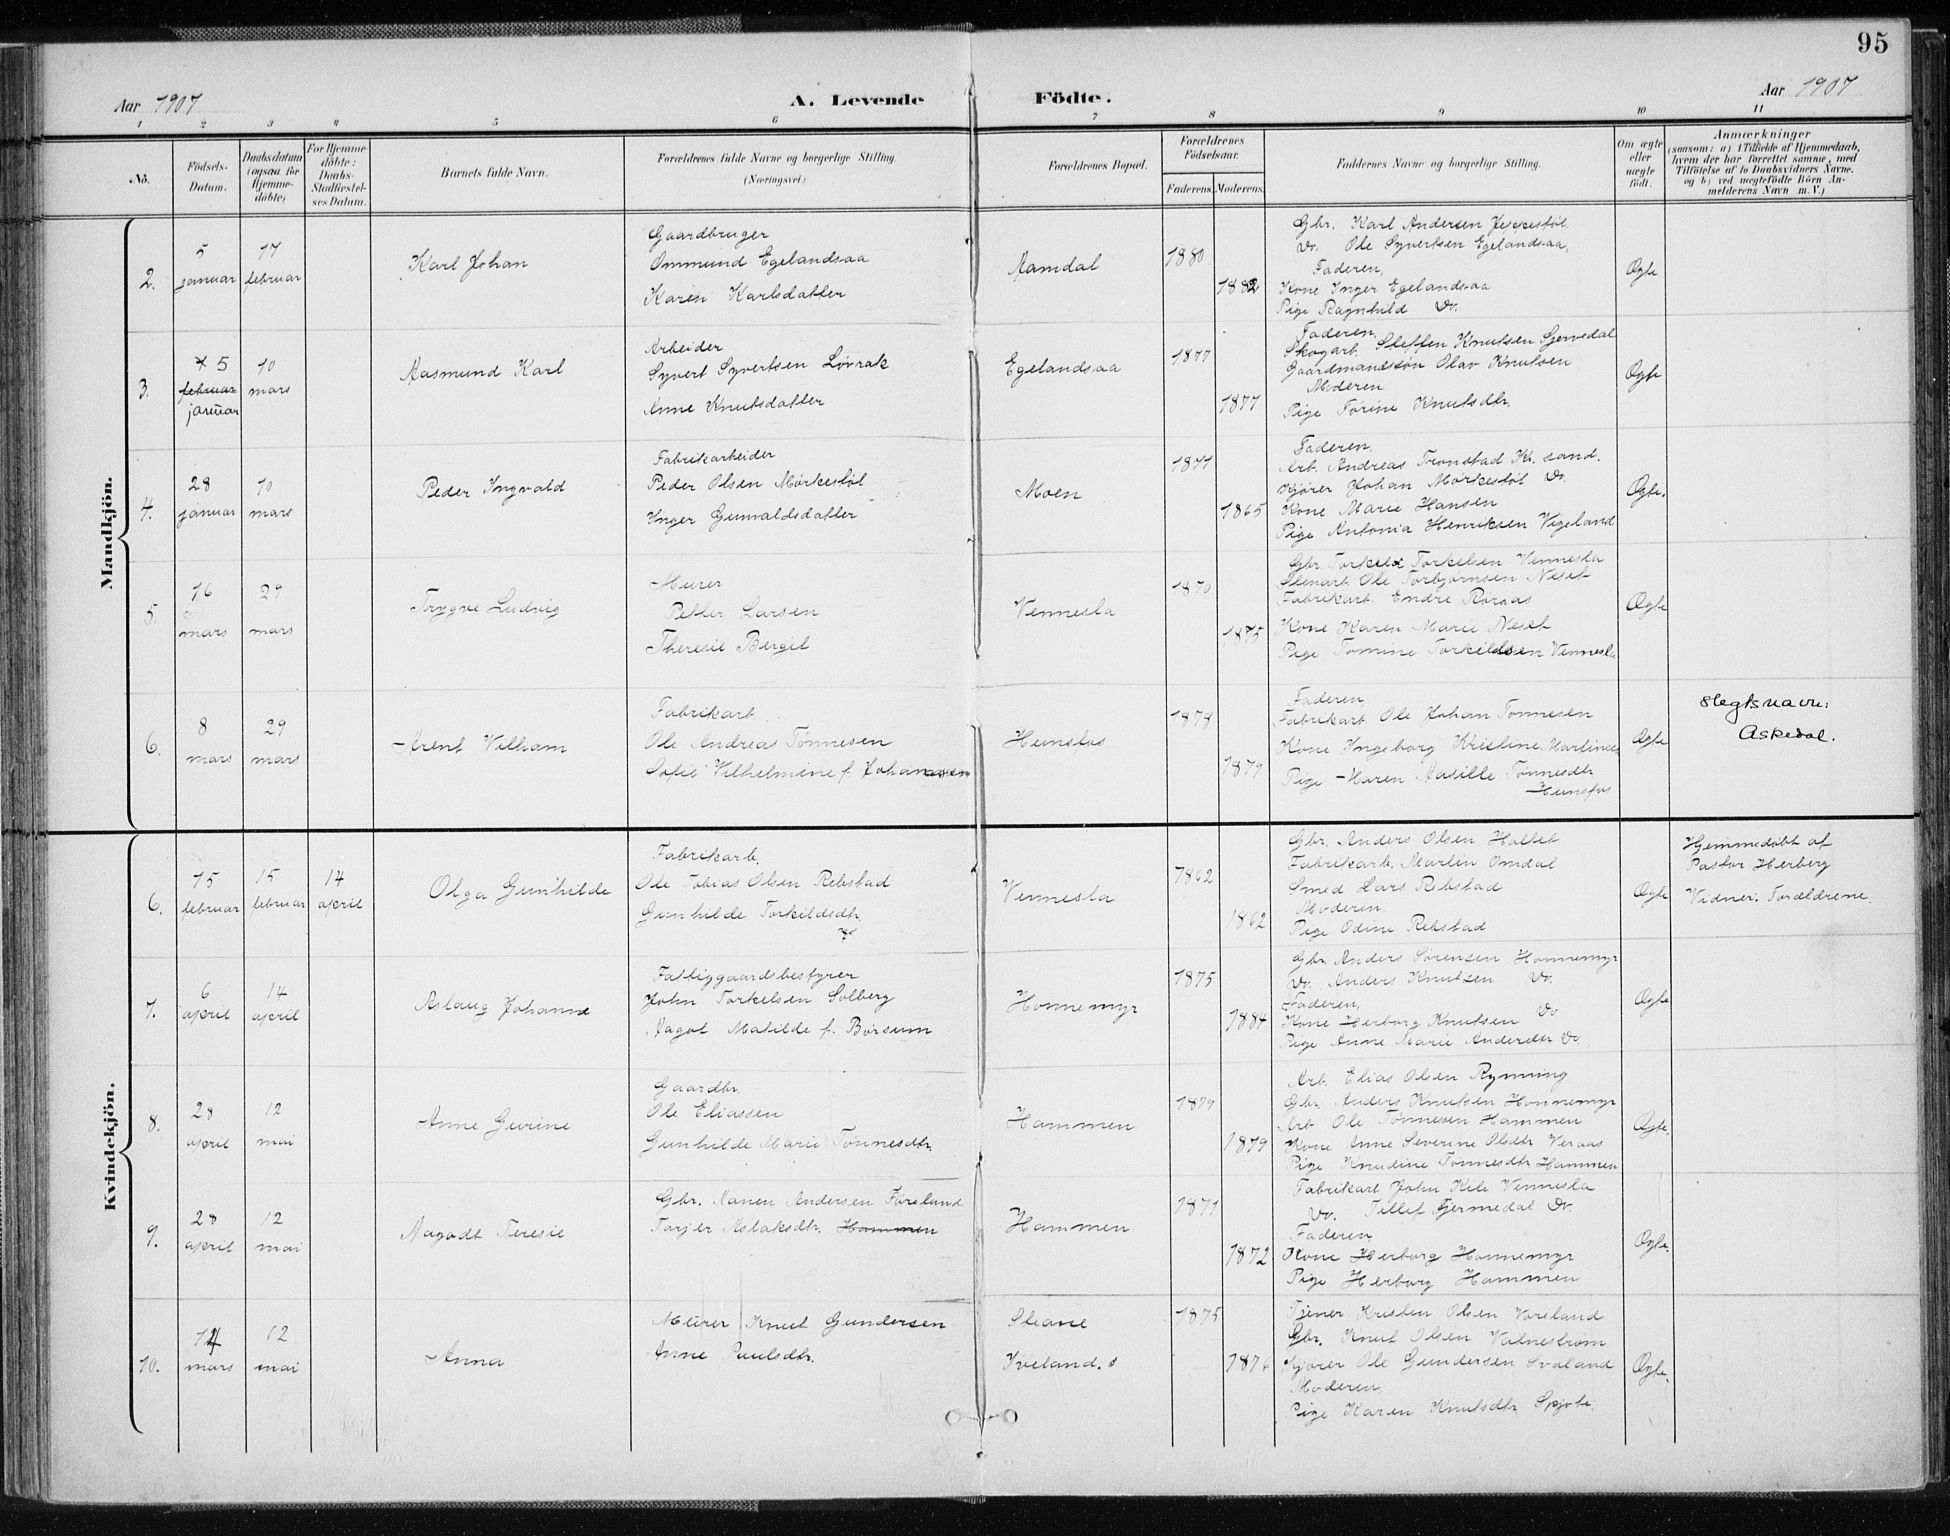 95
Aar 1907
A. Levende Födte.
Aar 1907
1 2 3 4 5 6 7 8 9 10 11
No.
Födsels-Datum.
Daabsdatum (ogsaa for Hjemme-döbte)
For Hjemme-döbte: Daabs-Stadfæstel-ses Datum.
Barnets fulde Navn.
Forældrenes fulde Navne og borgerlige Stilling.
(Næringsvei.)
Forældrenes Bopæl.
Forældrenes Födselsaar.
Faderens. Moderens.
Faddernes Navne og borgerlige Stilling.
Om ægte eller uægte födt.
Anmærkninger
(saasom: a) i Tilfælde af Hjemmedaab, hvem der har forrettet samme, med Tilföielse af to Daabsvidners Navne. og b) ved uægtefödte Börn An-melderens Navn m. V.)
Mandkjön.
2.
5 januar
17 februar
Karl Johan
Gaardbruger
Ommund Egelandsaa
Karen Karlsdatter
Aamdal
1880
1882
Gbr. Karl Andersen Jeppestøl
Do. Ole Syvertsen Egelandsaa,
Faderen,
Kone Inger Egelandsaa
Pige Ragnhild Do.
Ægte
3.
5
februar
januar
10 mars
Aasmund Karl
Arbeider
Syvert Syvertsen Løvrak
Anne Knutsdatter
Egelandsaa
1877
1877
Faderen,
Skogarb. Steffen Knutsen
Gaardmandssøn Olav Knutsen
Moderen
Pige Torine Knutsdtr.
Ægte
4.
28 januar
10 mars
Peder Ingvald
Fabrikarbeider
Peder Olsen Mørkestøl
Inger Gunvaldsdatter
Moen
1871
1865
Faderen,
Arb. Andreas Tronstad Kr. sand.
Kjører Johan Mørkestøl Do.
Kone Marie Hansen
Pige Antonia Henriksen Vigeland
Ægte.
5.
16 mars
29 mars
Trygve Ludvig
Murer
Petter Larsen
Theresie Bergit
Vennesla
1870
1875
Gbr. Torkel Torkelsen Vennesla
Stenarb. Ole Torbjørnsen Neset
Fabrikarb. Endre Røraas
Kone Karen Marie Neset
Pige Tomine Torkildsen Vennesla
Ægte
6.
8 mars
29 mars
Arent Vilham
Fabrikarb.
Ole Andreas Tønnesen
Sofie Vilhelmine f. Johannesen
Hunsfos
1878
1879
Faderen
Fabrikarb. Ole Johan Tønnesen
Kone Ingeborg Kristine Martinsen
Pige Karen Aasille Tønnesdtr.
Hunsfos
Ægte
Slegtsnavn:
Askedal.
Kvindekjön.
6.
15 februar
15 februar
14 april
Olga Gunhilde
Fabrikarb.
Ole Tobias Olsen Rebstad
Gunhilde Torkildsdtr.
Vennesla
1862
1862
Gbr. Anders Olsen Holtet
Fabrikarb. Martin Omdal
Smed Lars Rebstad
Moderen,
Pige Odine Rebstad
Ægte
Hjemmedøbt af
Pastor Herberg
Vidner: Forældrene.
7.
6 april
14 april
Aslaug Johanne
Fattiggaardsbestyrer
John Torkelsen Solberg
Aagot Matilde f. Børsum
Honnemyr
1875
1884
Gbr. Anders Sørensen Honnemyr
Do. Anders Knutsen Do.
Faderen,
Kone Herborg Knutsen Do
Pige Anne Marie Andersdtr Do.
Ægte
8.
28 april
12 mai
Anne Gurine
Gaardbr.
Ole Eliassen
Gunhilde Marie Tønnesdtr.
Hammen
1879
1879
Arb. Elias Olsen Rynning
Gbr. Anders Knutsen Honnemyr
Arb Ole Tønnesen Hammen
Kone Anne Severine Olsdtr. Veraas
Pige Knudine Tønnesdtr Hammen
Ægte.
9.
28 april
12 mai
Aagodt Teresie
Gbr. Aanen Andersen Føreland
Torjer Aslaksdtr. Hammen
Hammen
1871
1872
Fabrikarb John Kile Vennesla
Do. Tellef Gjermedal Do.
Faderen,
Kone Herborg Honnemyr
Pige Herborg Hammen
Ægte.
10.
mars
12 mai
Anna
Murer Knut Gundersen
Anne Paulsdtr.
Steane
Iveland. s
1875
1876
Tjener Kristen Olsen Vareland
Gbr. Knut Olsen Vatnestrøm
Kjører Ole Gundersen Svaland
Moderen,
Pige Karen Knutsdtr. Spjote.
Ægte.